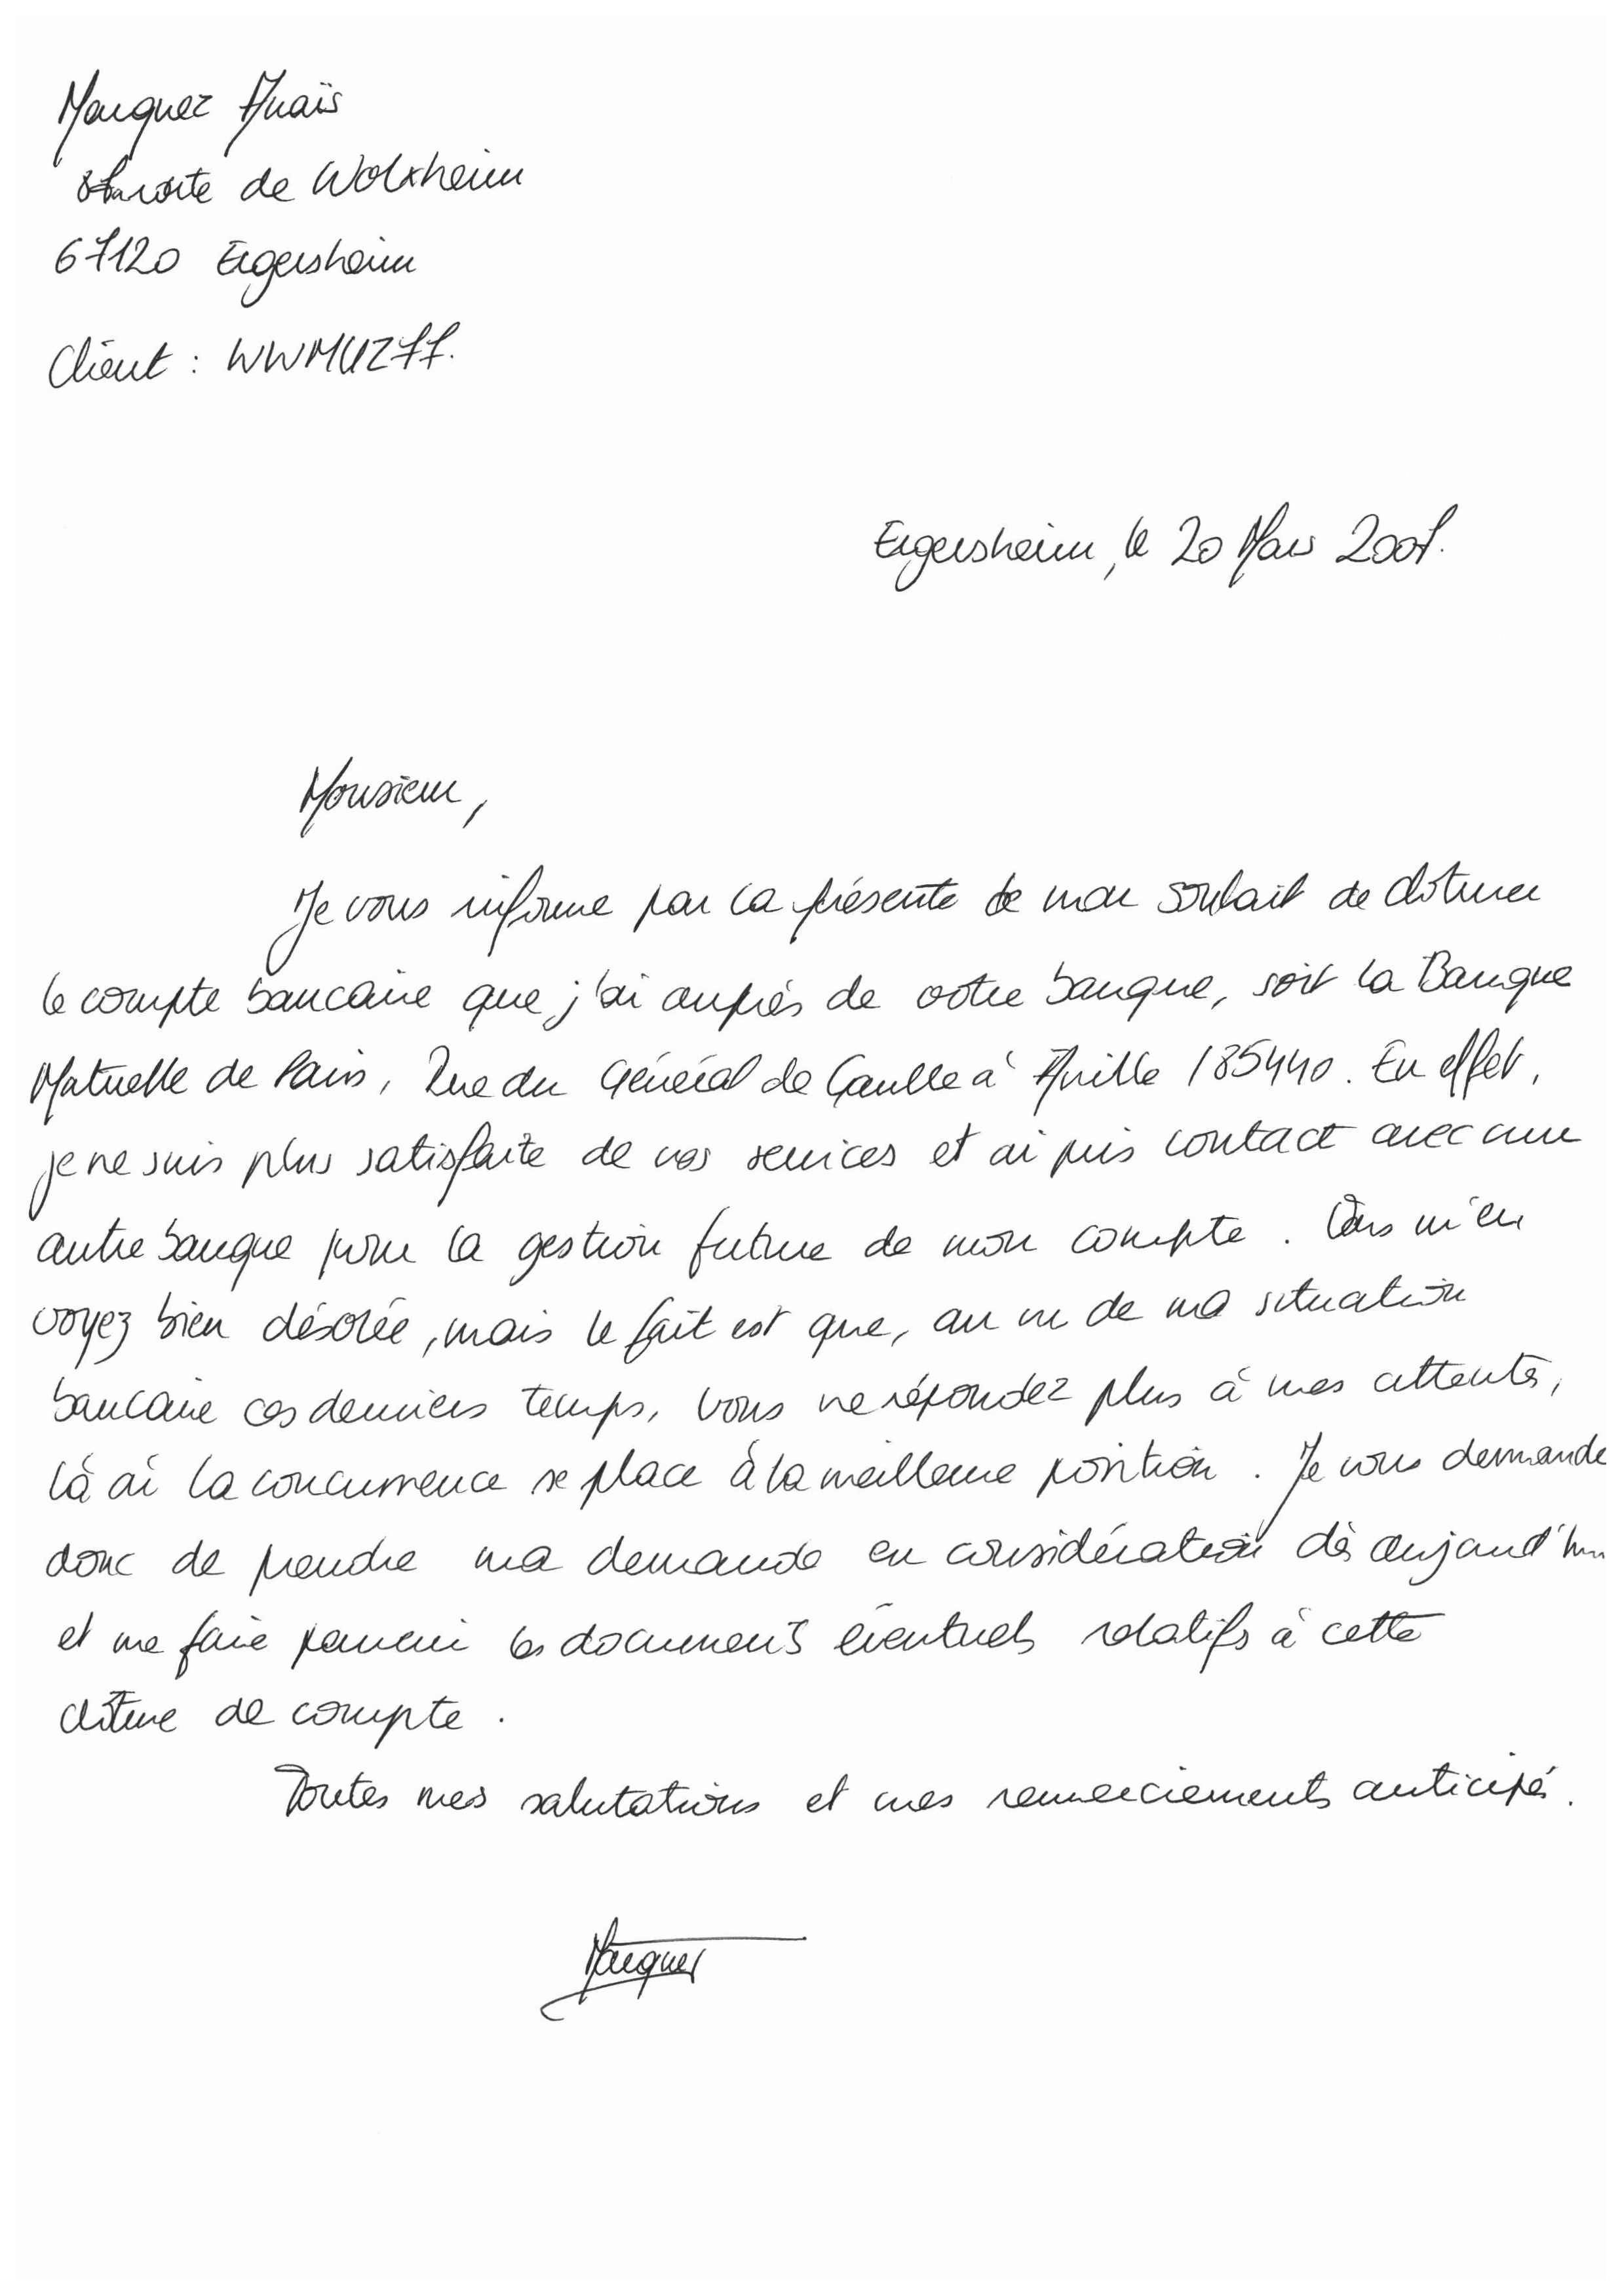 Marquez Anaïs
route de Wolxheim
67120 Ergersheim
Client : WWMUZ77.
Ergersheim, le 20 Mars 2007.
Monsieur,
Je vous informe par la présente de mon souhait de clôturer
le compte bancaire que j'ai auprès de votre banque, soit la Banque
Mutuelle de Paris, Rue du Général de Gaulle à Anille 185440. En effet,
je ne suis plus satisfaite de vos services et ai pris contact avec une
autre banque pour la gestion future de mon compte. Vous m'en
voyez bien désolée, mais le fait est que, au vu de ma situation
bancaire ces derniers temps, vous ne répondez plus à mes attentes,
là où la concurrence se place à la meilleure position. Je vous demande
donc de prendre ma demande en considération dès aujourd'hui
et me faire parvenir les documents éventuels relatifs à cette
clôture de compte.
Toutes mes salutations et mes remerciements anticipés.
Marquez